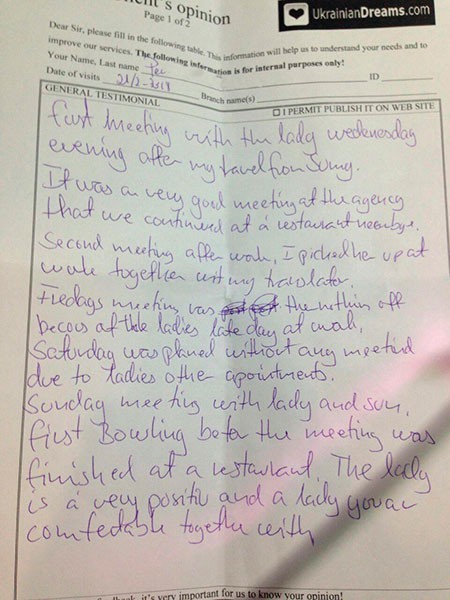 ent's opinion
Page 1 of 2
UkrainianDreams.com
Dear Sir, please fill in the following table. This information will help us to understand your needs and to
improve our services. The following information is for internal purposes only!
Your Name, Last name
ID
Date of visits
Branch name(s)
GENERAL TESTIMONIAL
I PERMIT PUBLISH IT ON WEB SITE
first meeting with the lady wedenesday
evening after my travel from Sumy.
It was an very good meeting at the agency
that we continued at a restaurant nearbye.
Second meeting after work, I picked her up at
work together with my translator.
Fredags meeting was the nothin off
becous of the ladies late day at work,
Saturday was planed without any meetind
due to ladies other apointments.
Sunday meeting with lady and sun,
first Bowling befor the meeting was
finished at a restaurant. The lady
is a very positiv and a lady you are
comfedable together with
it's very important for us to know your opinion!